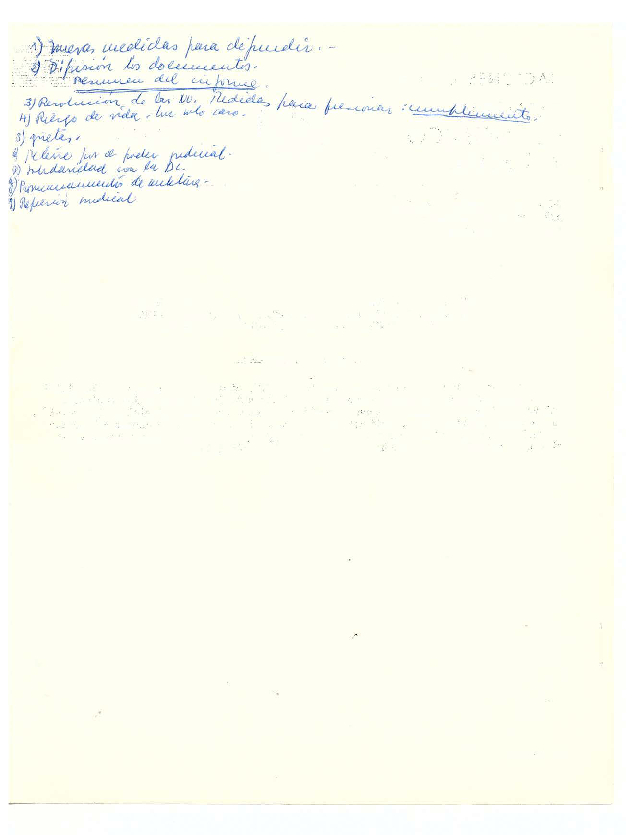 1) Nuevas medidas para difundir. -
2) Difusión los documentos.
resumen del informe.
3) Resolución de las NU. Medidas para presionar: cumplimiento.
4) Riesgo de vida.
5) grietas.
6) por el poder judicial.
7) Solidaridad con la DC.
8) Pronunciamientos de
9) Represión sindical